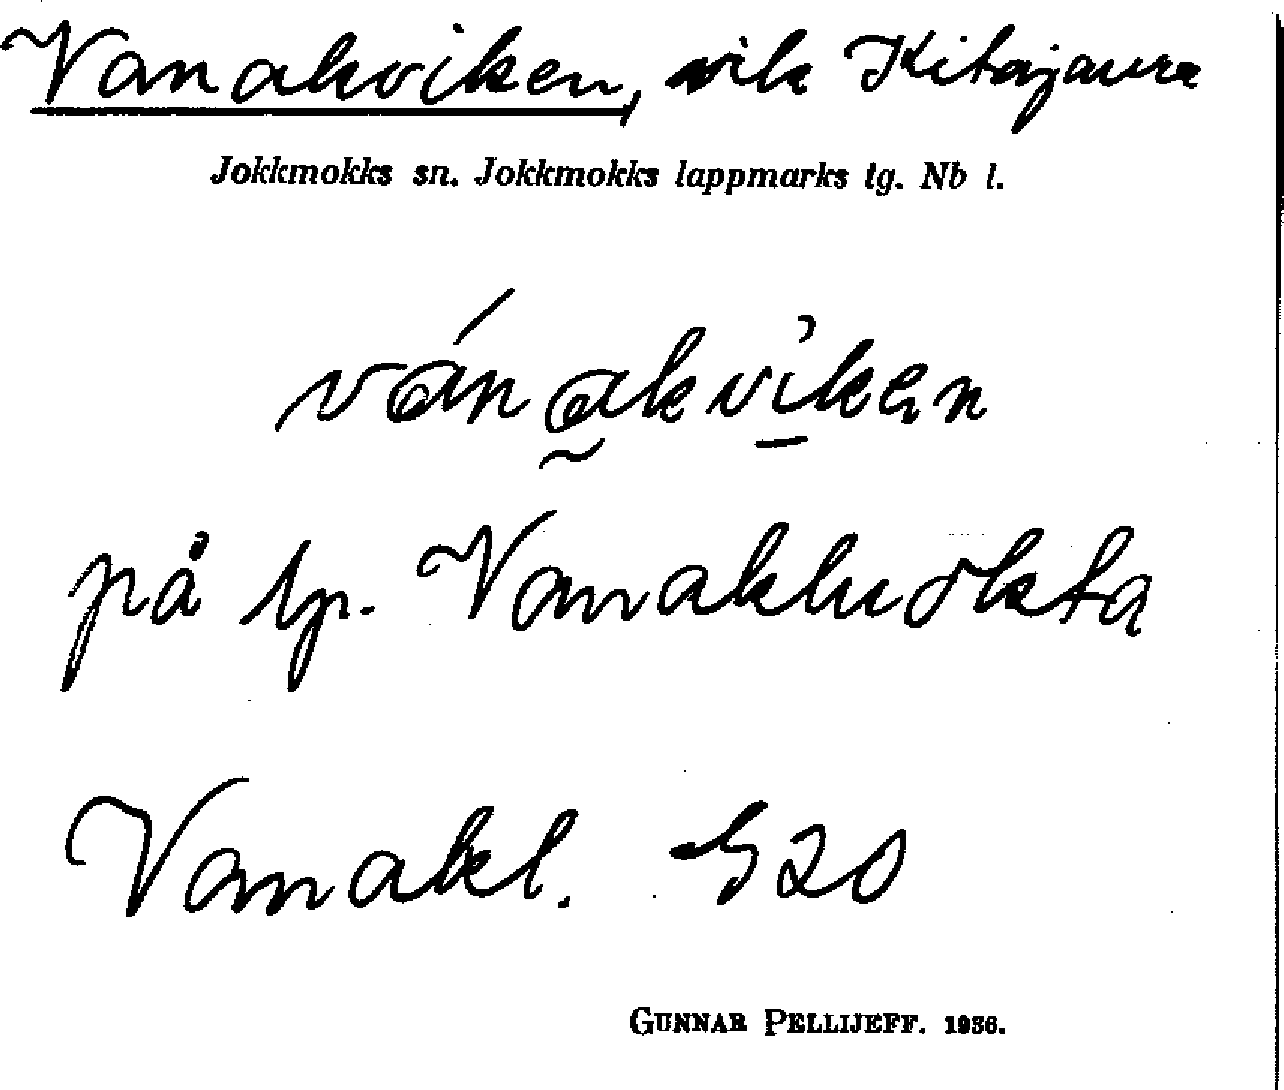 Vanakviken, vik Kitajaure
Jokkmokks sn. Jokkmokks lappmarks tg. Nb l.
vánakviken
på lp. Vanakluokta
Vanakl. G20
GUNNAR PELLIJEFF. 1936.